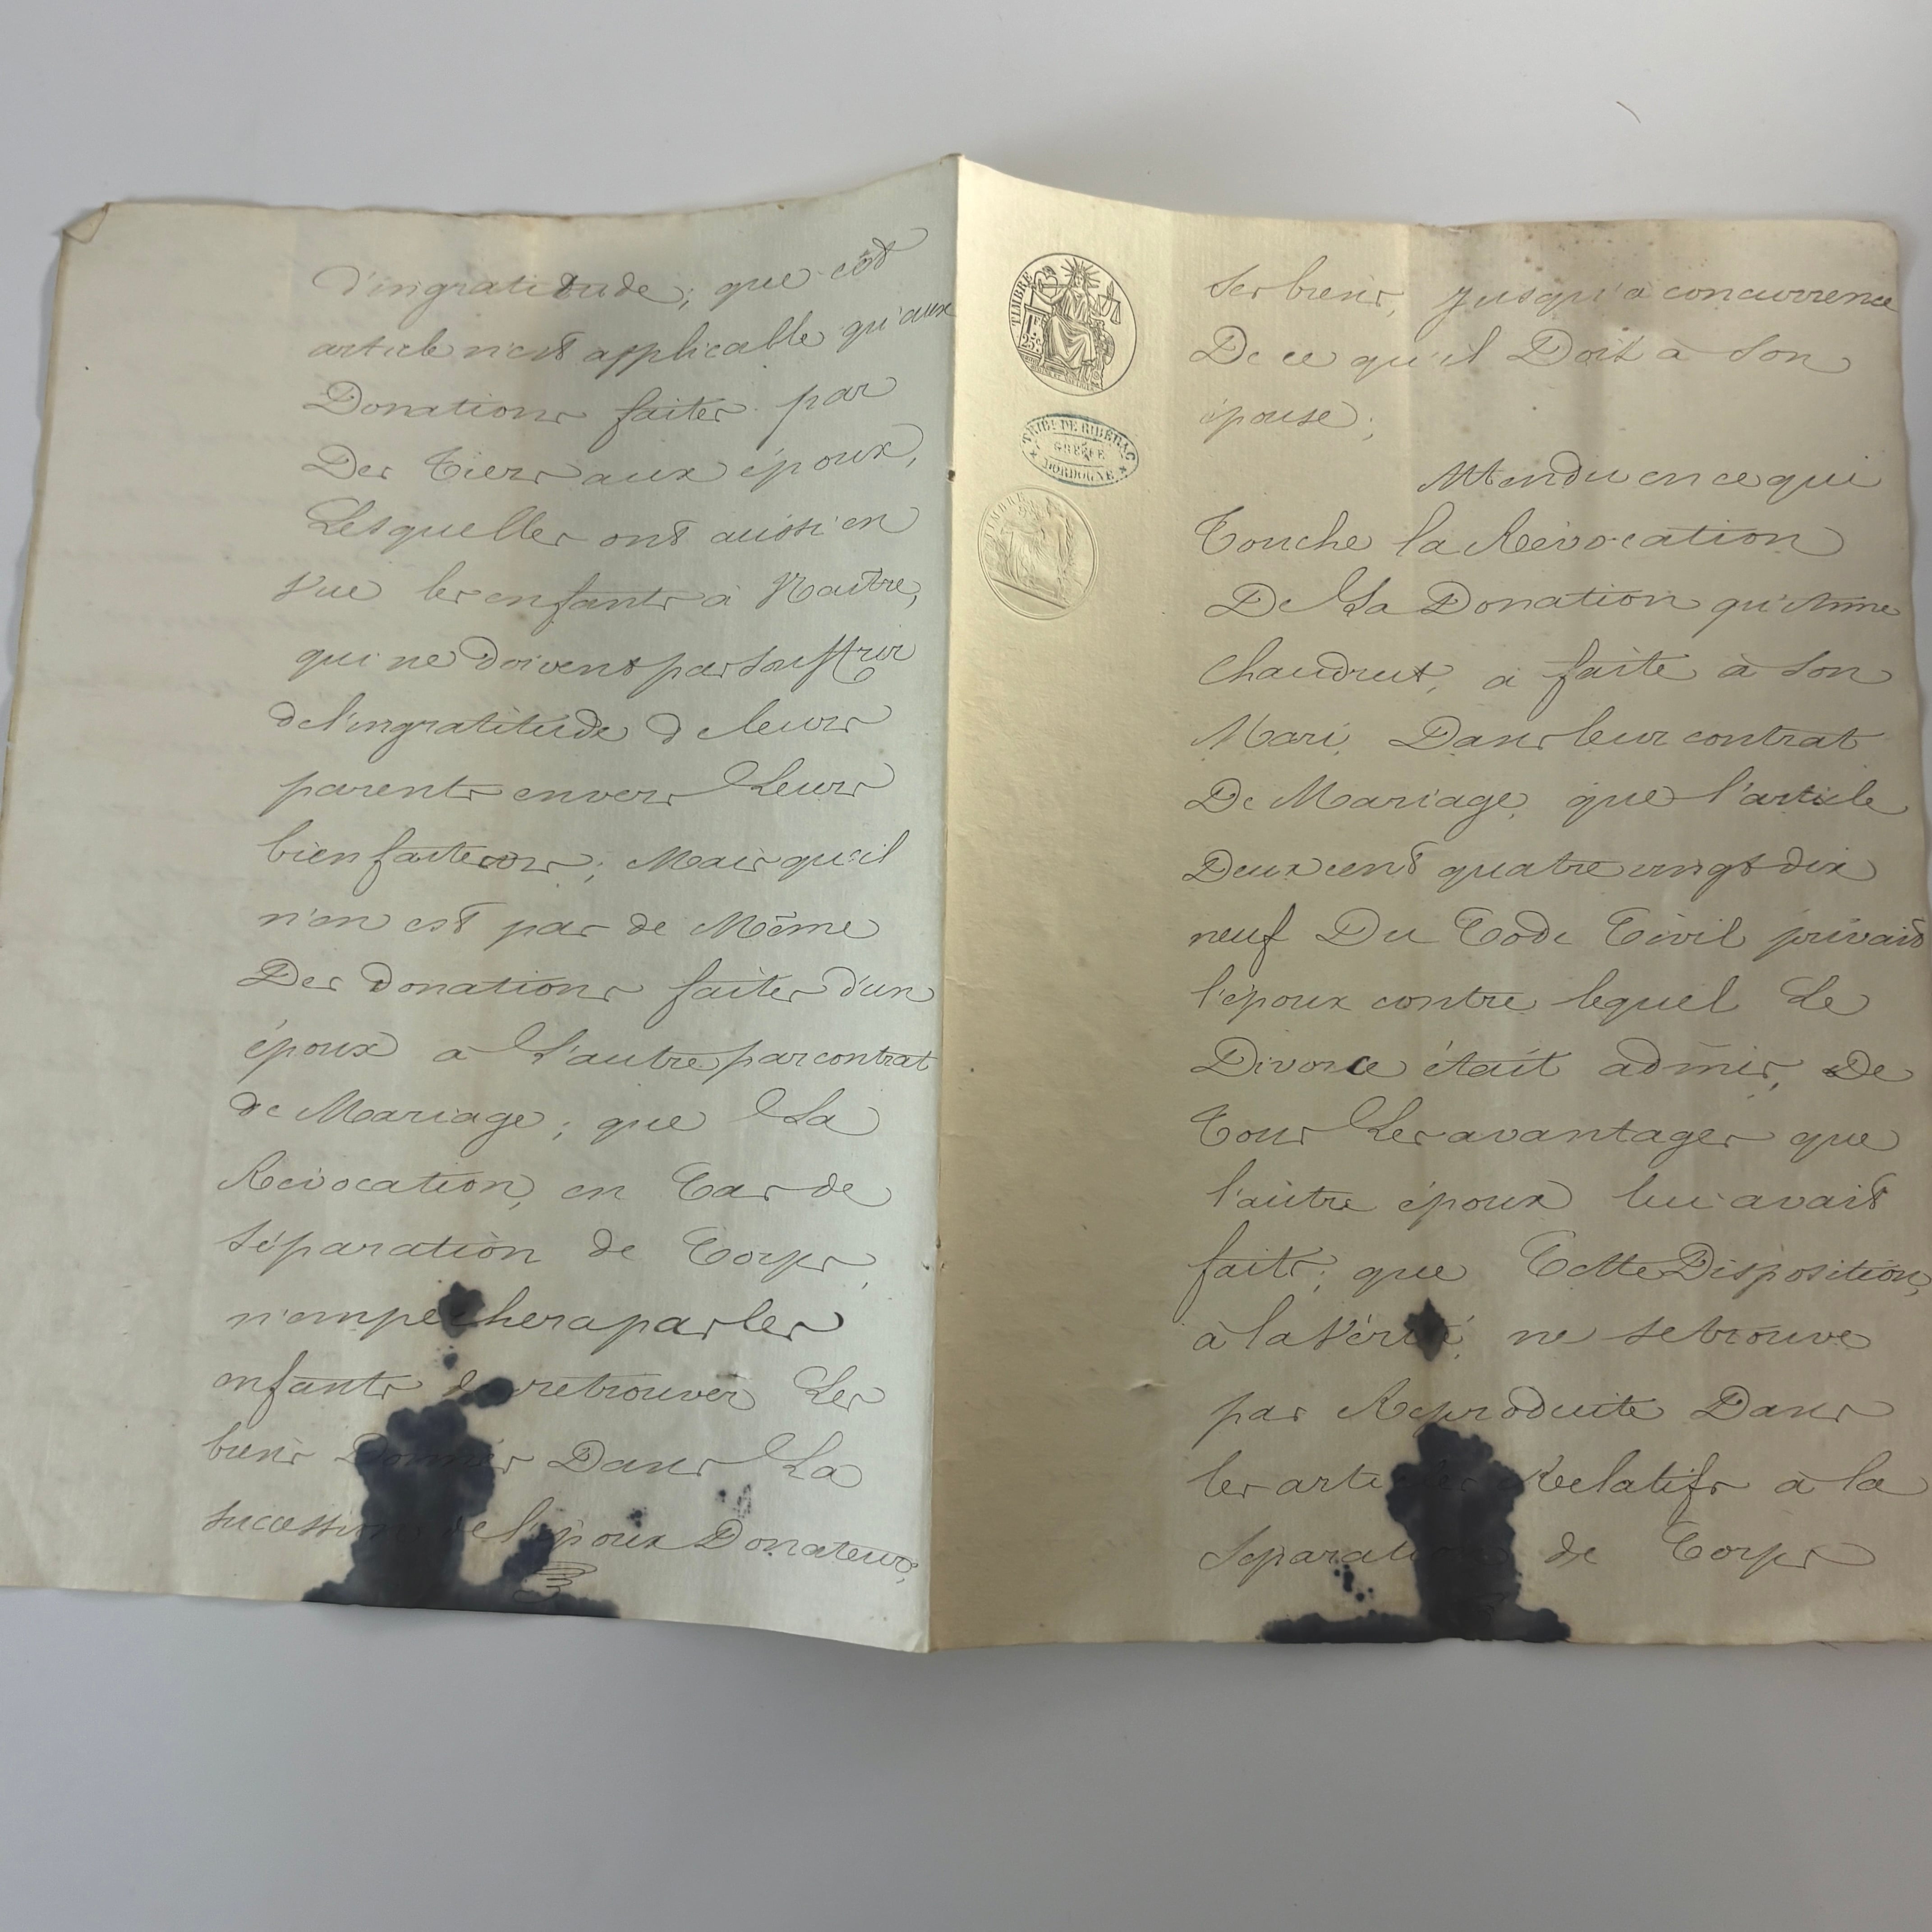 d'ingratitude; que cet
article n'est applicable qu'aux
Donations faites par
Des Tiers aux époux,
Lesquelles ont aussi en
Vue les enfants à Naître,
qui ne doivent pas souffrir
de l'ingratitude de leurs
parents envers Leurs
bienfaiteurs; Mais qu'il
n'en est pas de Même
Des donations faites d'un
époux à L'autre par contrat
de Mariage; que La
Révocation, en Cas de
Séparation de Corps,
n'empêchera pas les
enfants de retrouver Les
biens Donnés Dans La
succession de l'époux Donateur;
TIMBRE
1F
25c
TRIB. DE RIBÉRAC
GREFFE
DORDOGNE
TIMBRE
Ses biens, jusqu'à concurrence
De ce qu'il Doit à Son
épouse;
Attendu en ce qui
Touche la Révocation
De La Donation qu'Anne
Chaudrut, a faite à Son
Mari, Dans leur contrat
De Mariage, que l'article
Deux cent quatre vingt dix
neuf Du Code Civil privait
l'époux contre lequel Le
Divorce était admis, De
Tous Les avantages que
l'autre époux lui avait
faits; que Cette Disposition,
à la Vérité, ne se trouve
pas Reproduite Dans
les articles Relatifs à la
Séparation de Corps